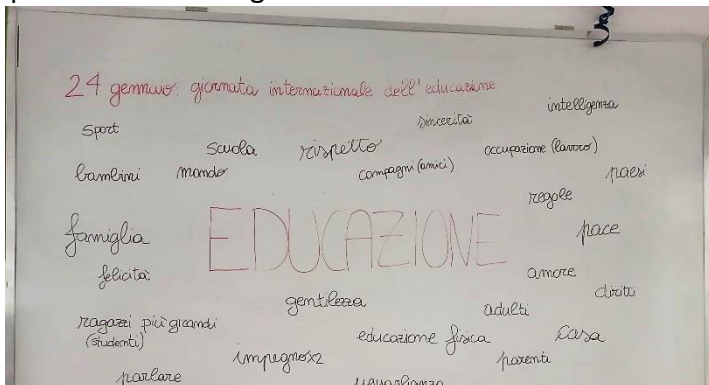 24 gennaio: giornata internazionale dell'educazione
intelligenza
sincerità
sport
scuola
rispetto
occupazione (lavoro)
bambini
mondo
compagni (amici)
paesi
regole
famiglia
EDUCAZIONE
pace
felicità
amore
diritti
gentilezza
adulti
ragazzi più grandi
(studenti)
educazione fisica
casa
impegnox2
parenti
parlare
uguaglianza